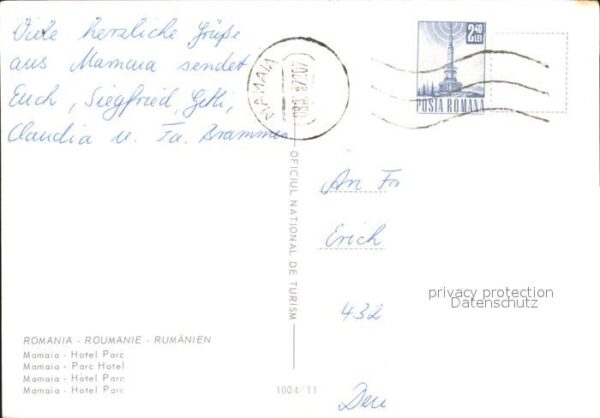 Viele herzliche Grüße
aus Mamaia sendet
Euch, Siegfried, Gitti,
Claudia u. Fa. Bramme
MAMAIA
2,40
LEI
POSTA ROMANA
OFICIUL NATIONAL DE TURISM
An Fr
Erich
432
privacy protection
Datenschutz
ROMANIA - ROUMANIE - RUMÄNIEN
Mamaia - Hotel Parc
Mamaia - Parc Hotel
Mamaia - Hôtel Parc
Mamaia - Hotel Parc
1004/11